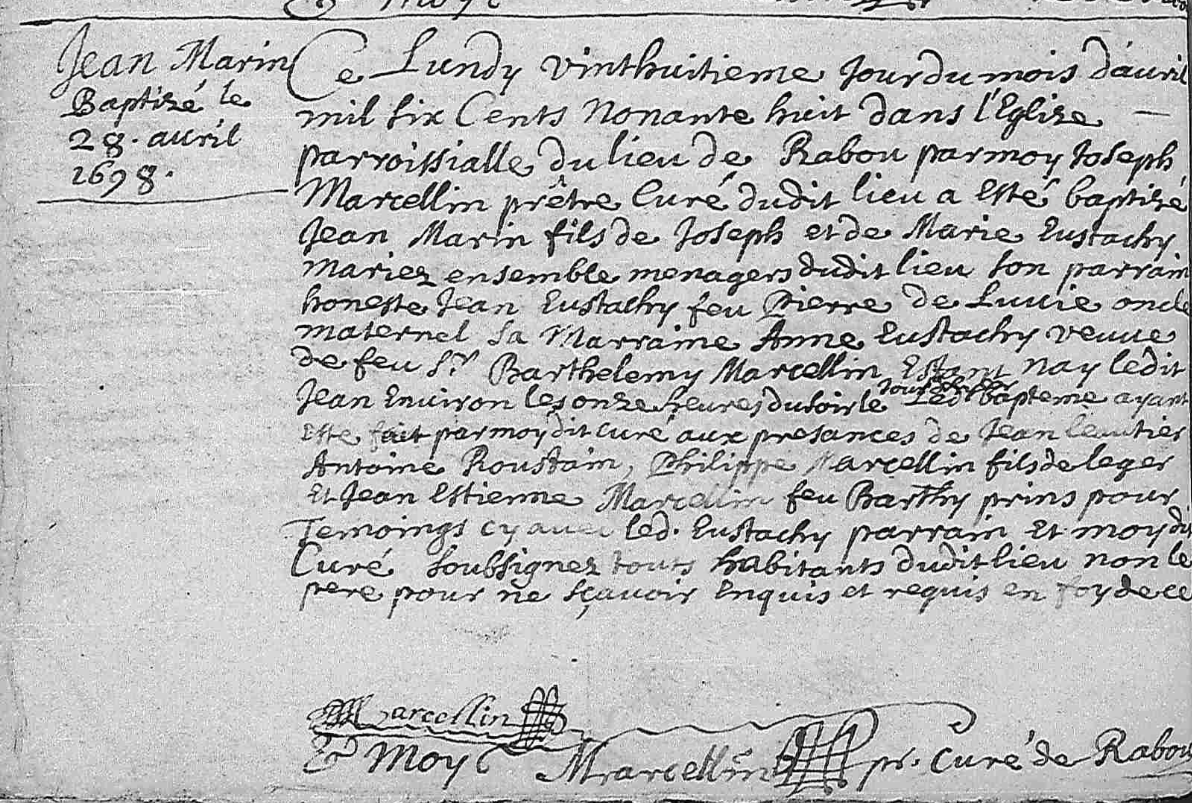 Jean Marin
Baptizé le
28. avril
1698.
Ce Lundy vinthuitieme Jour du mois d'avril
mil six Cents Nonante huit dans l'Eglize
parroissialle du lieu de Rabou par moy Joseph
Marcellin prêtre Curé dudit lieu a Esté baptizé
Jean Marin fils de Joseph et de Marie Eustachy
mariez ensemble menagers dudit lieu son parrain
honeste Jean Eustachy feu Pierre de Luuie oncle
maternel sa Marraine Anne Eustachy veuue
de feu Sr. Barthelemy Marcellin Estant nay ledit
Jean Environ les onze heures du soir le Led. bapteme ayant
Esté fait par moy dit curé aux presances de Jean
Antoine Roustain, Philippe Marcellin fils de leger
Et Jean Estienne Marcellin feu Barthy prins pour
Temoings cy avec led. Eustachy parrain Et moy dit
Curé soubsignez touts habitants dudit lieu non le
pere pour ne sçavoir Enquis et requis en foy de ce
Marcellin
Et Moy
Marcellin pr. Curé de Rabou